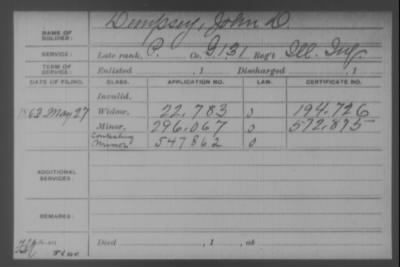 Dempsey, John D.
NAME OF SOLDIER:
SERVICE: Late rank, P. Co. G, 131 Reg't Ill. Inf.
TERM OF SERVICE: Enlisted , 1 Discharged , 1
DATE OF FILING. CLASS. APPLICATION NO. LAW. CERTIFICATE NO.
Invalid,
1863 May 27 Widow, 22,783 0 194.726
Minor, 296,067 0 572,875
Contesting Minor 547862 0
ADDITIONAL SERVICES:
REMARKS:
Died , 1 , at